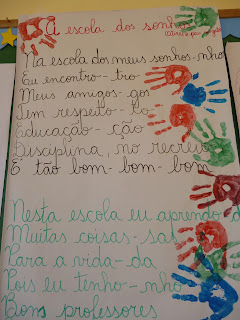 A escola dos sonhos
Na escola dos meus sonhos-nhos
Eu encontro--tro
Meus amigos-gos
Tem respeito-to
Educação-ção
Disciplina, no recreio
E tão bom-bom-bom
Nesta escola eu aprendo-do
Muitas coisas-sas
Para a vida-da
Pois eu tenho--nho
Bons professores